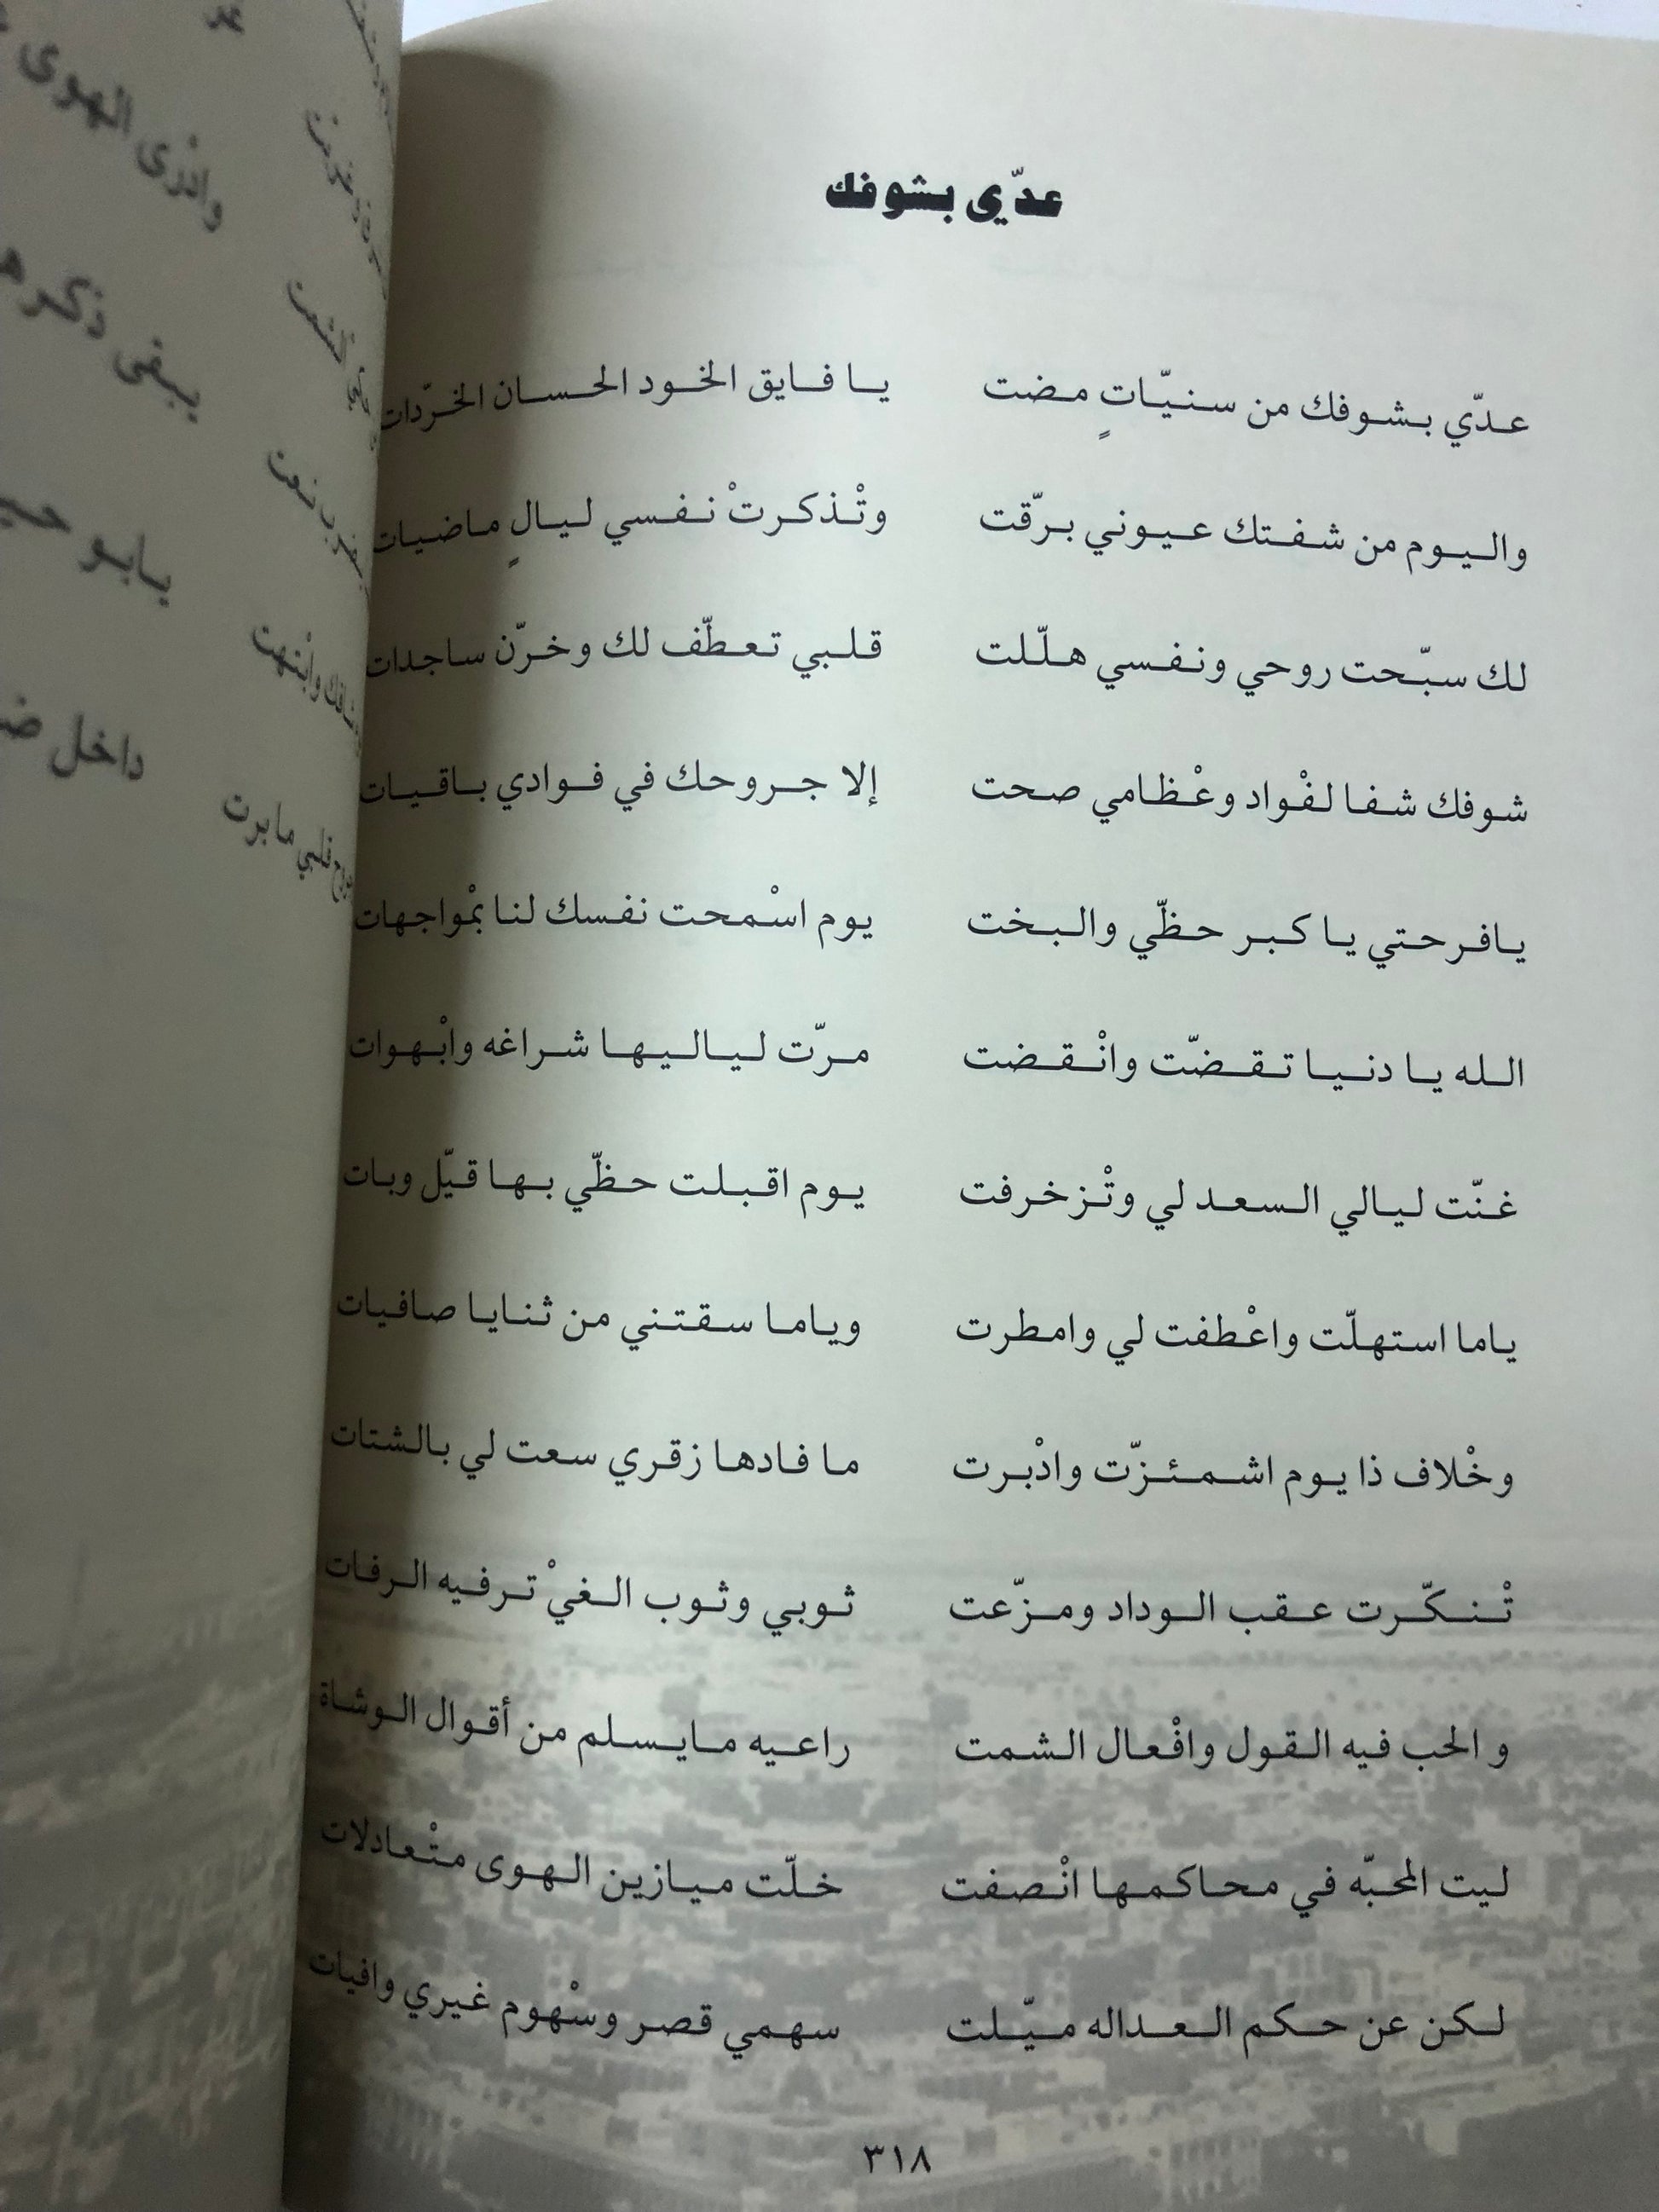 عدّي بشوفك
عدّي بشوفك من سنيّاتٍ مضت يا فايق الخود الحسان الخرّدات
واليوم من شفتك عيوني برّقت وتْذكرتْ نفسي ليالٍ ماضيات
لك سبّحت روحي ونفسي هلّلت قلبي تعطّف لك وخرّن ساجدات
شوفك شفا لفْواد وعْظامي صحت إلا جروحك في فوادي باقيات
يافرحتي يا كبر حظّي والبخت يوم اسْمحت نفسك لنا بمْواجهات
الله يا دنيا تقضّت وانْقضت مرّت لياليها شراغه وابْهوات
غنّت ليالي السعد لي وتْزخرفت يوم اقبلت حظّي بها قيّل وبات
ياما استهلّت واعْطفت لي وامطرت وياما سقتني من ثنايا صافيات
وخْلاف ذا يوم اشمئزّت وادْبرت ما فادها زقري سعت لي بالشتات
تْنكّرت عقب الوداد ومزّعت ثوبي وثوب الغيْ ترفيه الرفات
و الحب فيه القول وافْعال الشمت راعيه مايسلم من أقوال الوشاة
ليت المحبّه في محاكمها انْصفت خلّت ميازين الهوى متْعادلات
لكن عن حكم العداله ميّلت سهمي قصر وسْهوم غيري وافيات
٣١٨
وادْرى الهوى
يبقى ذكره
يابو
داخل
قلبي مابرت